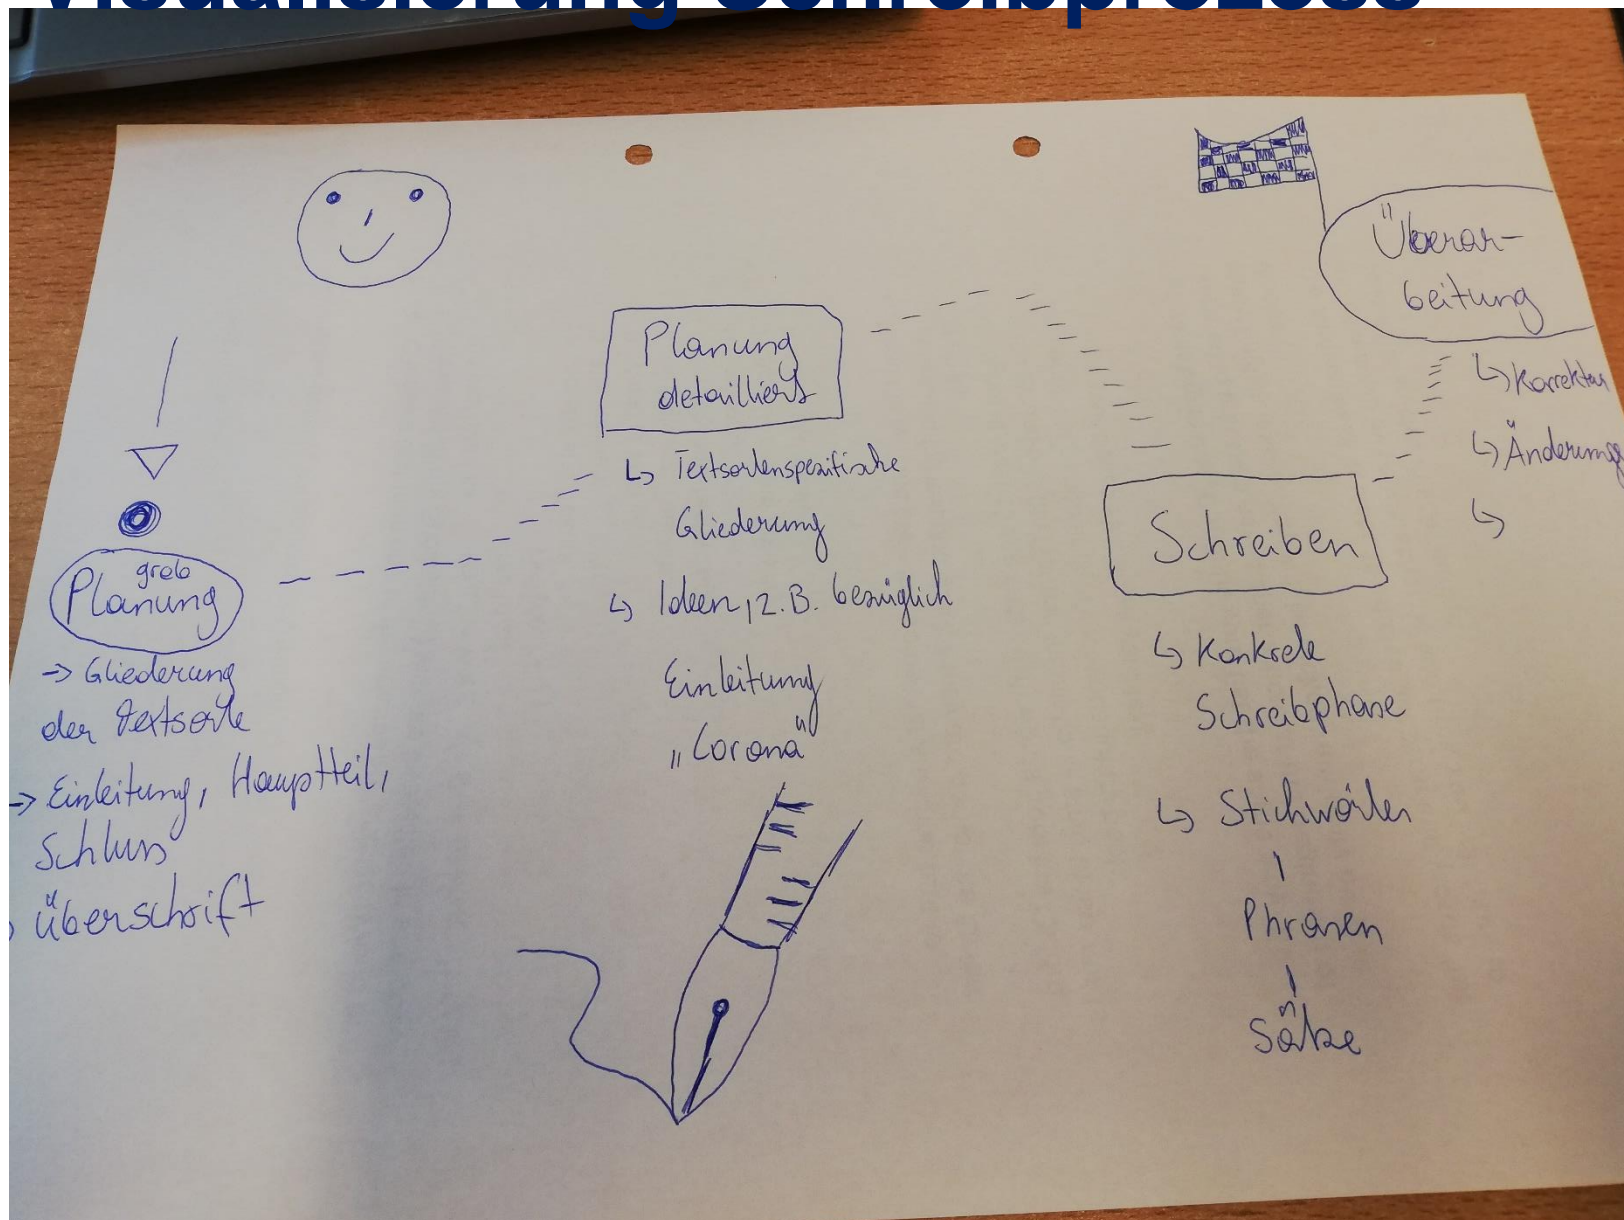 Visualisierung Schreibprozess
grob
Planung
-> Gliederung
der Textsorte
-> Einleitung, Hauptteil,
Schluss
Überschrift
Planung
detailliert
↳ Textsortenspezifische
Gliederung
↳ Ideen, z.B. bezüglich
Einleitung
„Corona"
Schreiben
↳ Konkrete
Schreibphase
↳ Stichwörter
Phrasen
Sätze
Überar-
beitung
↳ Korrektur
↳ Änderung
↳